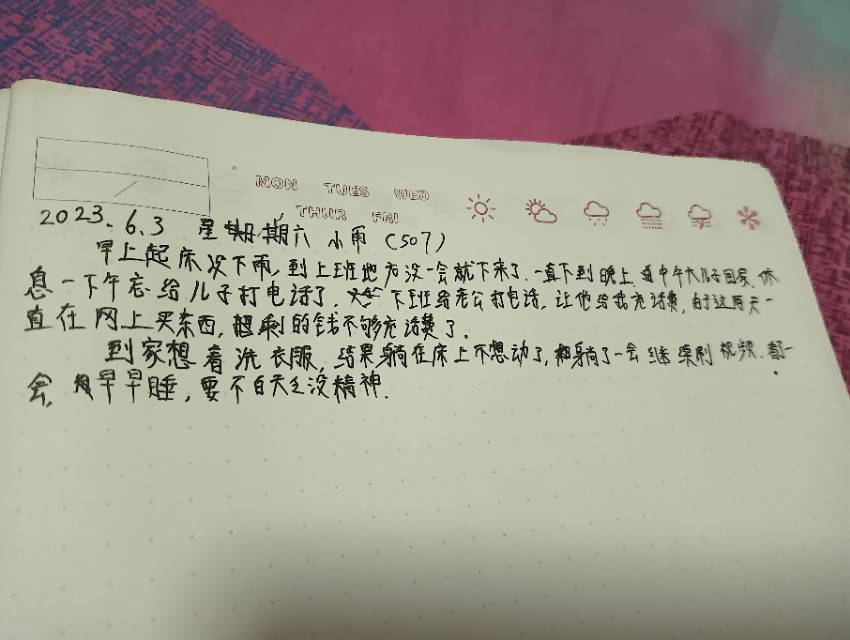 MON TUES WED
THUR FRI
2023.6.3 星期六 小雨 (507)
早上起床没下雨,到上班地方没一会就下来了.一直下到晚上.中午大儿子回家.休
息一下午忘给儿子打电话了.下班给老公打电话,让他给我充话费,由于这两天一
直在网上买东西,剩的钱不够充话费了.
到家想着洗衣服,结果躺在床上不想动了,躺了一会继续刷视频.看一
会,早早睡,要不白天又没精神.